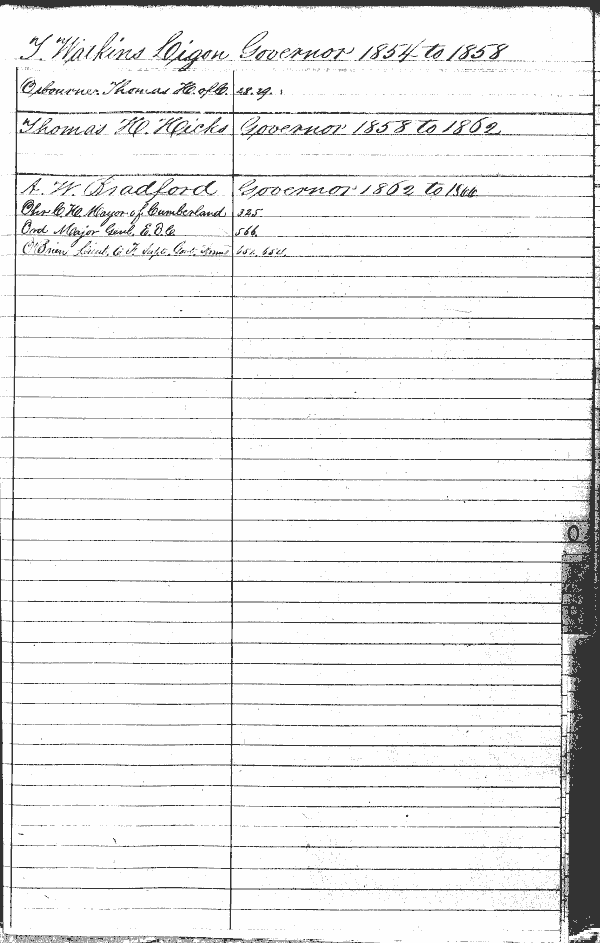 T. Watkins Ligon Governor 1854 to 1858
Osbourner Thomas H. of C. 28.29.
Thomas H. Hicks Governor 1858 to 1862
A. W. Bradford Governor 1862 to 1866
Ohr C. H. Mayor of Cumberland 325.
Ord Major Genl. E.O.C. 566.
O'Brien Lieut. Supt. 
O